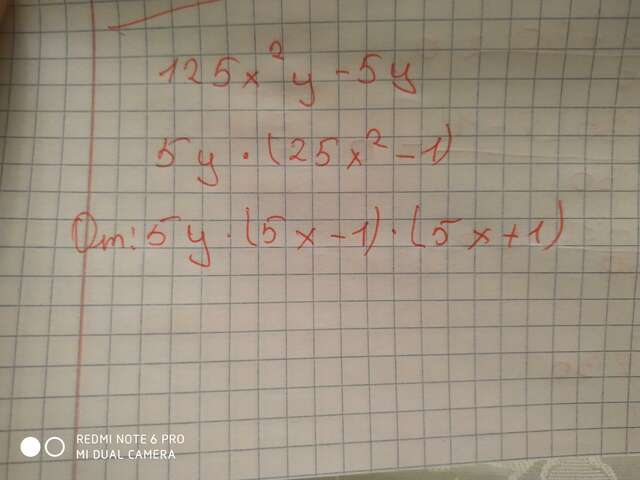 125x²y - 5y
5y · (25x² - 1)
От: 5y · (5x - 1) · (5x + 1)
REDMI NOTE 6 PRO
MI DUAL CAMERA